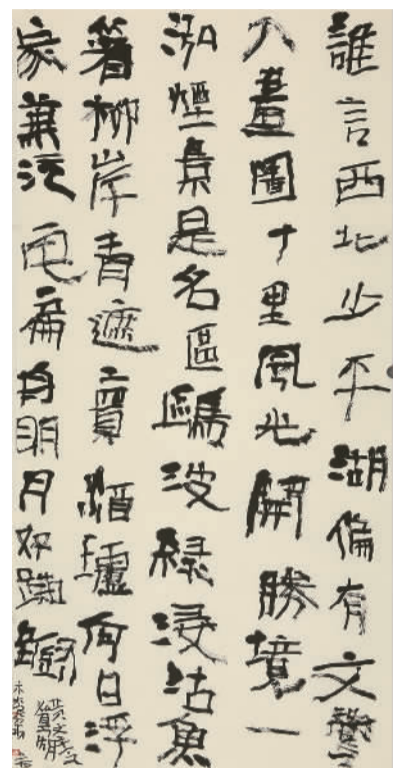 誰言西北少平湖偏有文
入畫圖十里風光開勝境一
泓煙景是名區鷗波綠浸沽魚
柳岸青遮賣酒壚何日浮
家兼泛宅扁舟明月好踟躕